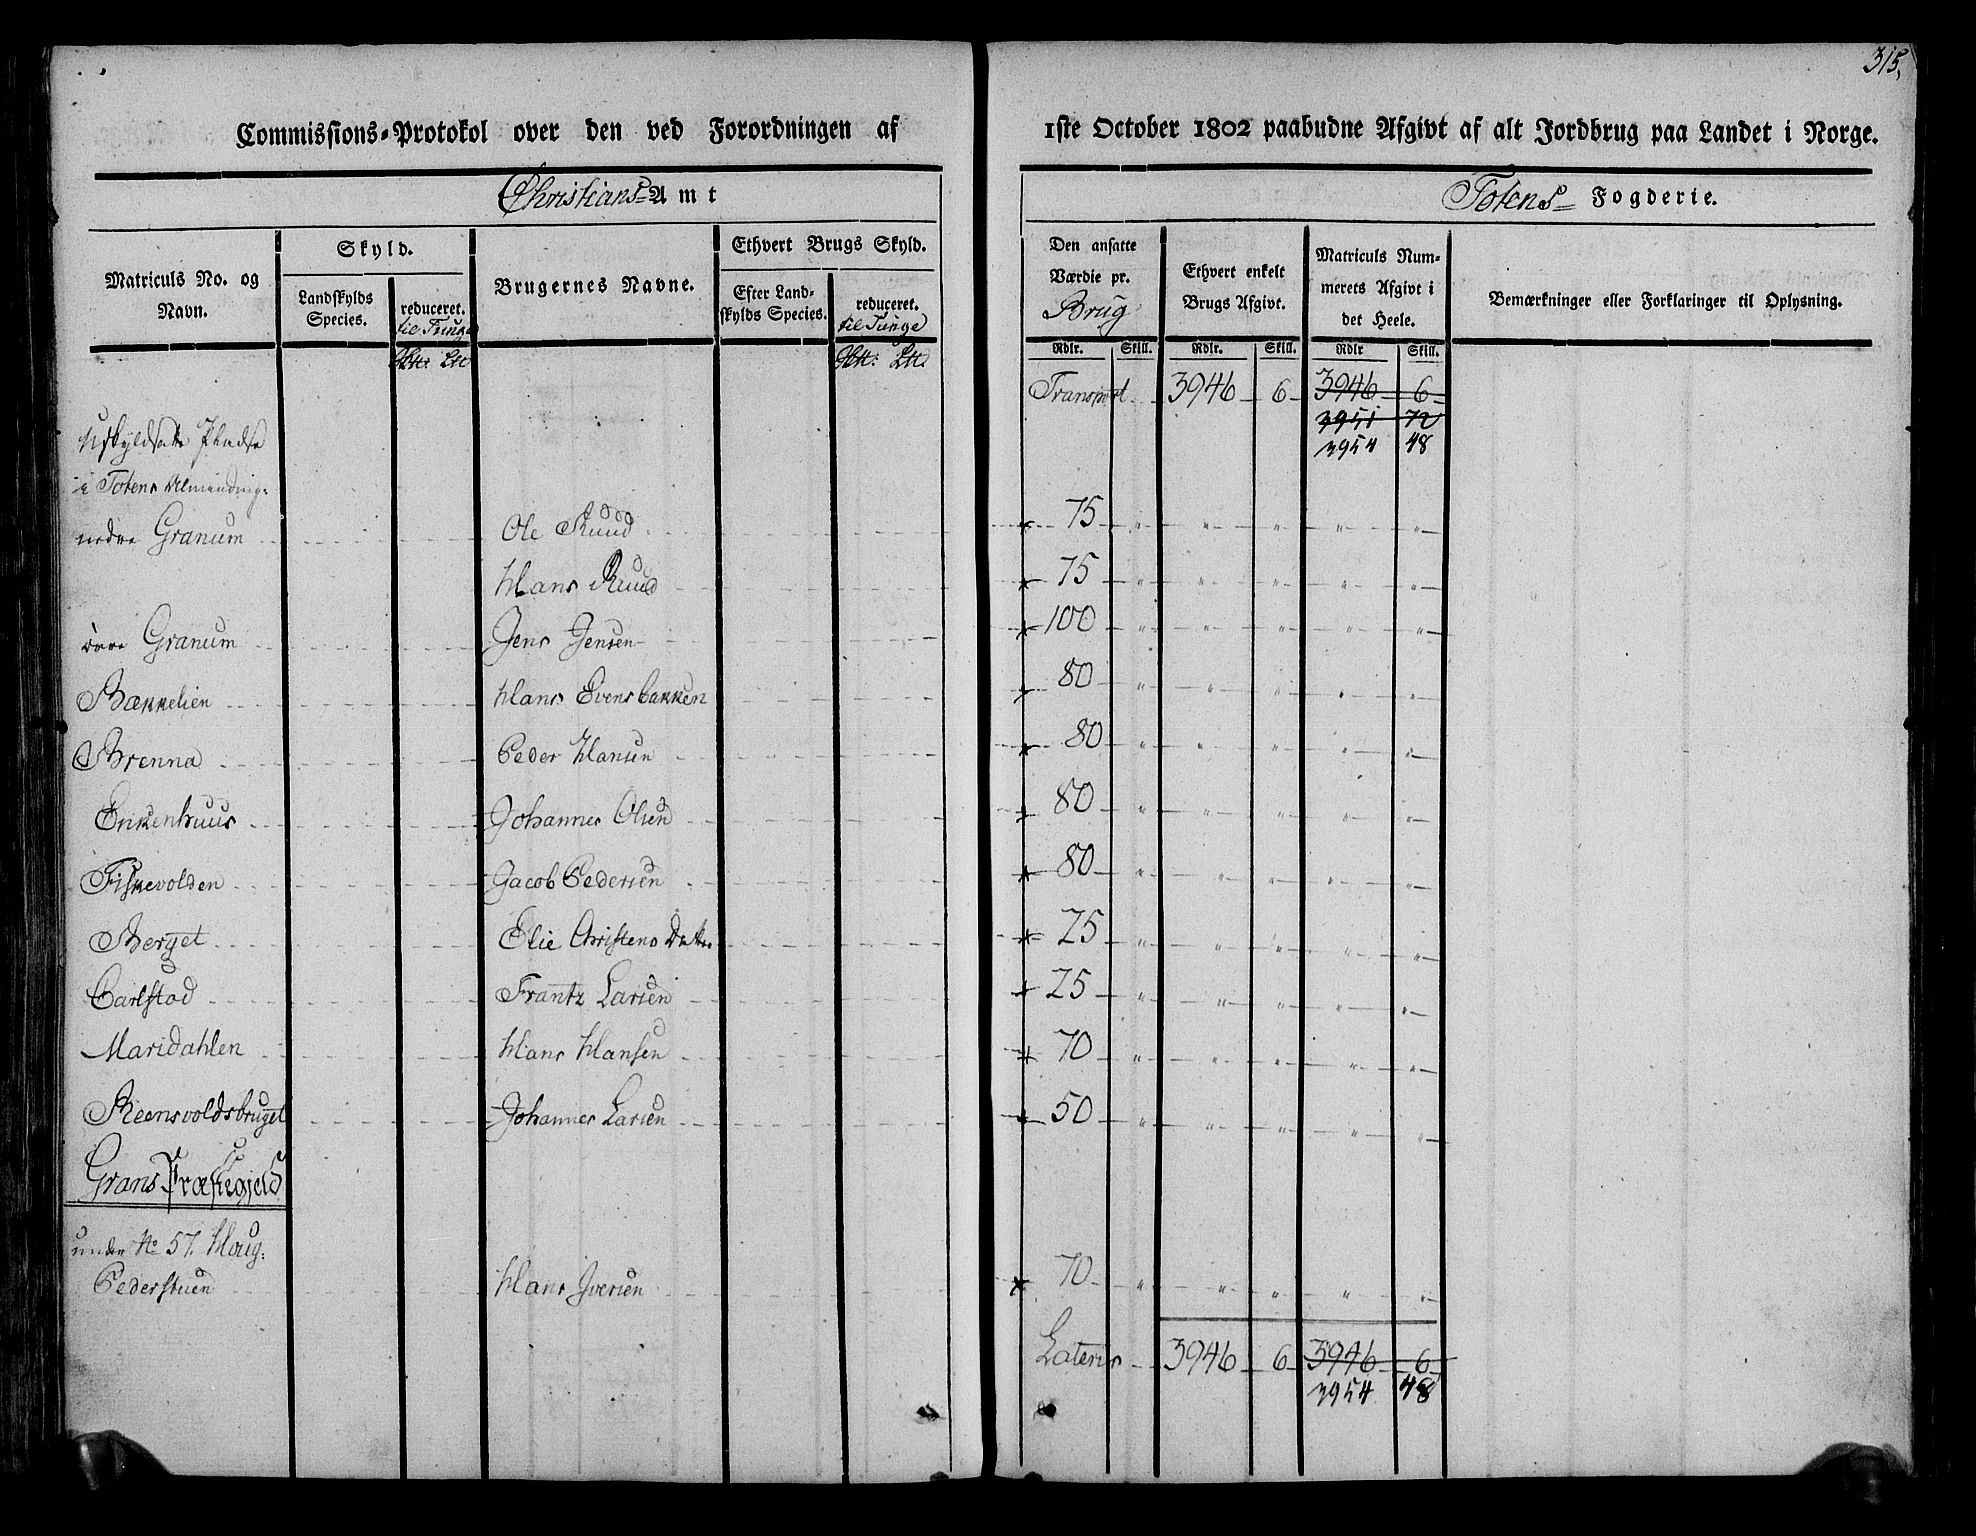 315.
Commissions-Protokol over den ved Forordningen af 1ste October 1802 paabudne Afgivt af alt Jordbrug paa Landet i Norge.
Christians Amt
Totens Fogderie.
Matriculs No. og Navn.
Skyld.
Landskylds Species.
reduceret. til Tunge
Brugernes Navne.
Ethvert Brugs Skyld.
Efter Landskylds Species.
reduceret. til Tunge
Den ansatte Værdie pr. Brug
Ethvert enkelt Brugs Afgivt.
Matriculs Nummerets Afgivt i det Heele.
Bemærkninger eller Forklaringer til Oplysning.
Rdlr. Skill. Rdlr. Skill. Rdlr Skill.
Transport 3946 6 3946 6
3951 72
3954 48
Uskyldsatte Pladse
i Totens Almending:
nedre Granum Ole Ruud 75 " " " " "
Hans Ruud 75 " " " " "
övre Granum Jens Jensen 100 " " " " "
Bækkelien Hans Evensbakken 80 " " " " "
Brenna Peder Hansen 80 " " " " "
Enkenhuus Johannes Olsen 80 " " " " "
Fiskevolden Jacob Pedersen 80 " " " " "
Berget Elie Christens Datter 25 " " " " "
Carlstad Frantz Larsen 25 " " " " "
Maridahlen Hans Hansen 70 " " " " "
Reensvoldsbruget Johannes Larsen 50 " " " " "
Grans Præstegjeld
under No 57. Houg:
Pederstuen Hans Iversen 70 " " " " "
Lateris 3946 6 3946 6
3954 48